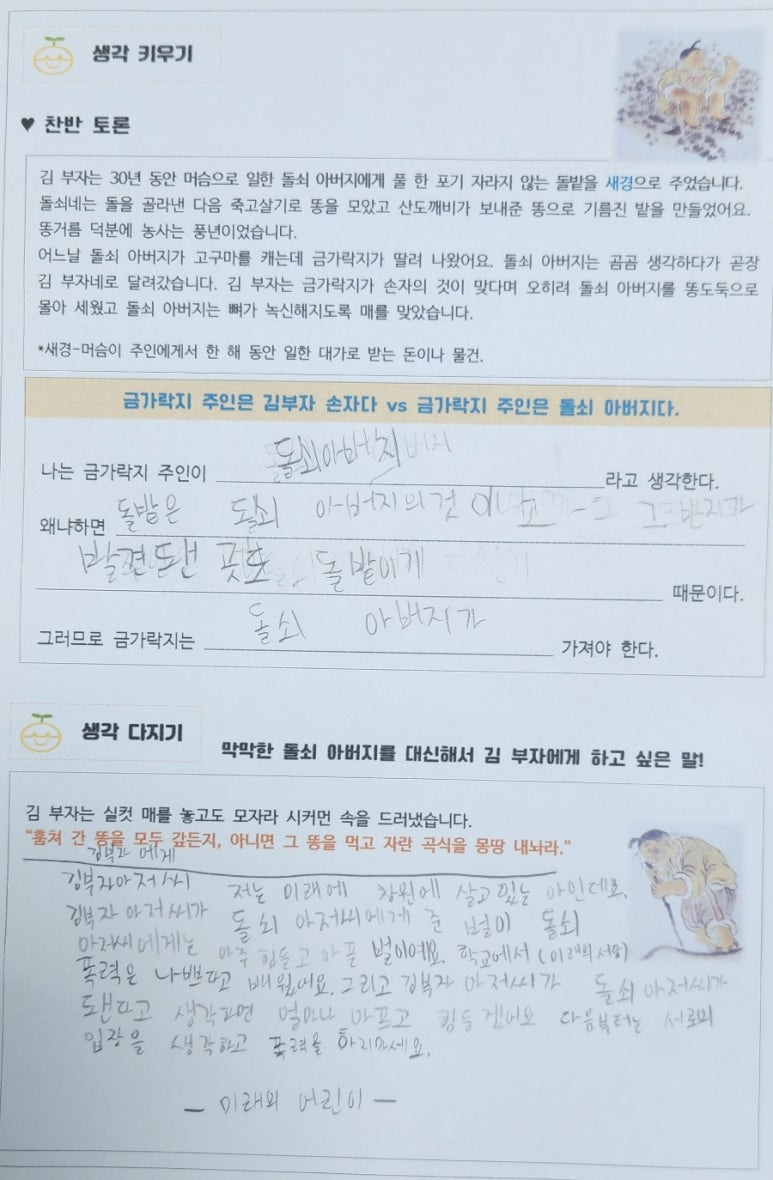 생각 키우기
♥ 찬반 토론
김 부자는 30년 동안 머슴으로 일한 돌쇠 아버지에게 풀 한 포기 자라지 않는 돌밭을 새경으로 주었습니다.
돌쇠네는 돌을 골라낸 다음 죽고살기로 똥을 모았고 산도깨비가 보내준 똥으로 기름진 밭을 만들었어요.
똥거름 덕분에 농사는 풍년이었습니다.
어느날 돌쇠 아버지가 고구마를 캐는데 금가락지가 딸려 나왔어요. 돌쇠 아버지는 곰곰 생각하다가 곧장
김 부자네로 달려갔습니다. 김 부자는 금가락지가 손자의 것이 맞다며 오히려 돌쇠 아버지를 똥도둑으로
몰아 세웠고 돌쇠 아버지는 뼈가 녹신해지도록 매를 맞았습니다.
*새경-머슴이 주인에게서 한 해 동안 일한 대가로 받는 돈이나 물건.
금가락지 주인은 김부자 손자다 vs 금가락지 주인은 돌쇠 아버지다.
나는 금가락지 주인이 돌쇠아버지 라고 생각한다.
왜냐하면 돌밭은 돌쇠 아버지의 것 그 반지가
발견됀 곳도 돌밭이게 때문이다.
그러므로 금가락지는 돌쇠 아버지가 가져야 한다.
생각 다지기
막막한 돌쇠 아버지를 대신해서 김 부자에게 하고 싶은 말!
김 부자는 실컷 매를 놓고도 모자라 시커먼 속을 드러냈습니다.
"훔쳐 간 똥을 모두 갚든지, 아니면 그 똥을 먹고 자란 곡식을 몽땅 내놔라."
김부자에게
김부자아저씨 저는 미래에 창원에 살고 있는 아인데요.
김부자 아저씨가 돌쇠 아저씨에게 준 벌이 돌쇠
아저씨에게는 아주 힘들고 아픈 벌이에요. 학교에서 (미래의 서당)
폭력은 나쁘다고 배웠어요. 그리고 김부자 아저씨가 돌쇠 아저씨가
됀다고 생각하면 얼마나 아프고 힘들겠어요 다음부터는 서로의
입장을 생각하고 폭력을 하지마세요.
- 미래의 어린이 -